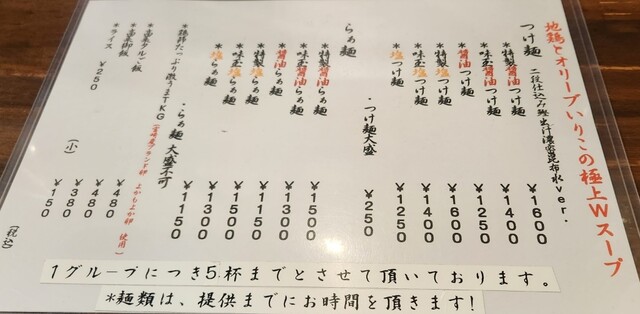 地鶏とオリーブいりこの極上Wスープ
つけ麺 二段仕込み鰹出汁濃密昆布水ver.
*特製醤油つけ麺 ¥1600
*味玉醤油つけ麺 ¥1400
*醤油つけ麺 ¥1250
*特製塩つけ麺 ¥1600
*味玉塩つけ麺 ¥1400
*塩つけ麺 ¥1250
・つけ麺大盛 ¥250
らぁ麺
*特製醤油らぁ麺 ¥1500
*味玉醤油らぁ麺 ¥1300
*醤油らぁ麺 ¥1150
*特製塩らぁ麺 ¥1500
*味玉塩らぁ麺 ¥1300
*塩らぁ麺 ¥1150
・らぁ麺 大盛不可
たっぷり激うまTKG (宮崎産ブランド卵 よかもよか卵 使用) ¥480
*高菜タルご飯 ¥480
*高菜御飯 ¥380
*ライス ¥250 (小) ¥150
(税込)
1グループにつき5杯までとさせて頂いております。
*麺類は、提供までにお時間を頂きます!